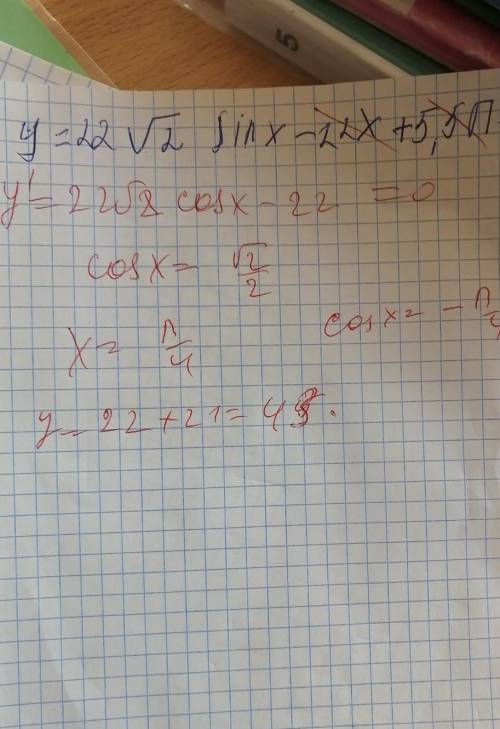 5
y = 22 √2 sin x - 22x + 5,5П
y' = 22√2 cosx - 22 = 0
cosx = √2/2
x = П/4 cosx = - П/4
y = 22 + 21 = 43.